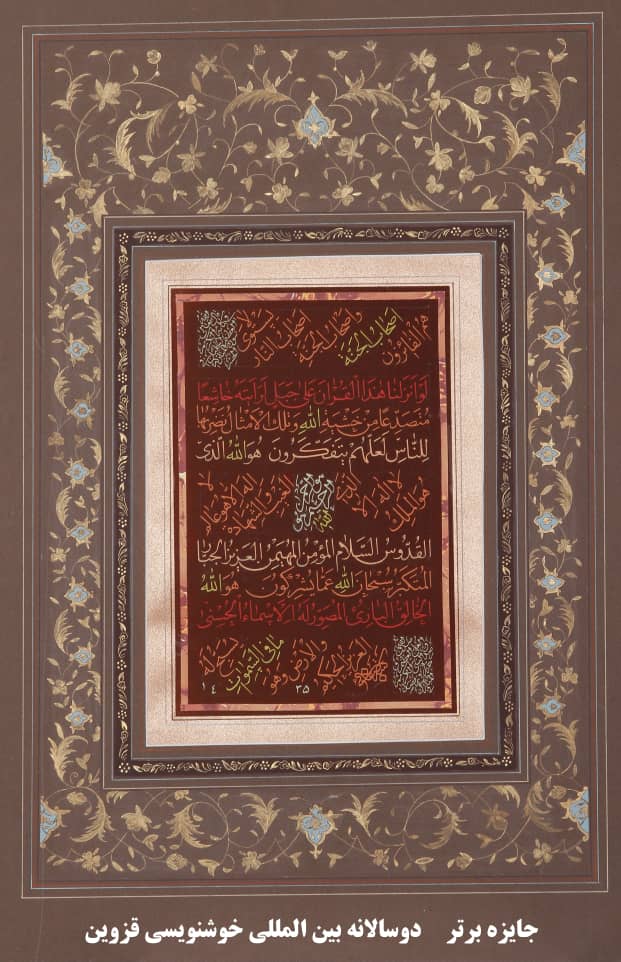 لا يستوى اصحاب النار واصحاب الجنة اصحاب الجنة هم الفائزون
لو انزلنا هذا القرآن على جبل لرأيته خاشعا
متصدعا من خشية الله وتلك الامثال نضربها
للناس لعلهم يتفكرون هو الله الذى
لا اله الا هو عالم الغيب والشهادة هو الرحمن الرحيم هو الله الذى لا اله الا هو الملك
القدوس السلام المؤمن المهيمن العزيز الجبار
المتكبر سبحان الله عما يشركون هو الله
الخالق البارئ المصور له الاسماء الحسنى
يسبح له ما فى السموات والارض وهو العزيز الحكيم
١٤ ٣٥
جایزه برتر دوسالانه بین المللی خوشنویسی قزوین